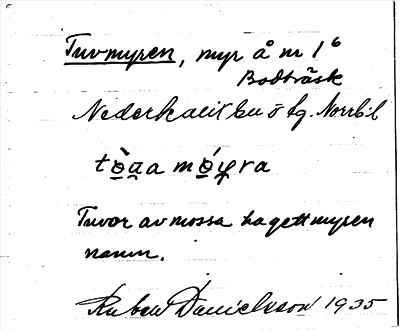 Tuvmyren, myr å nr 1⁶
Bodträsk
Nederkalix bn ö tg. Norrb. l
Tuvor av mossa ha gett myren
namn.
Ruben Danielsson 1935